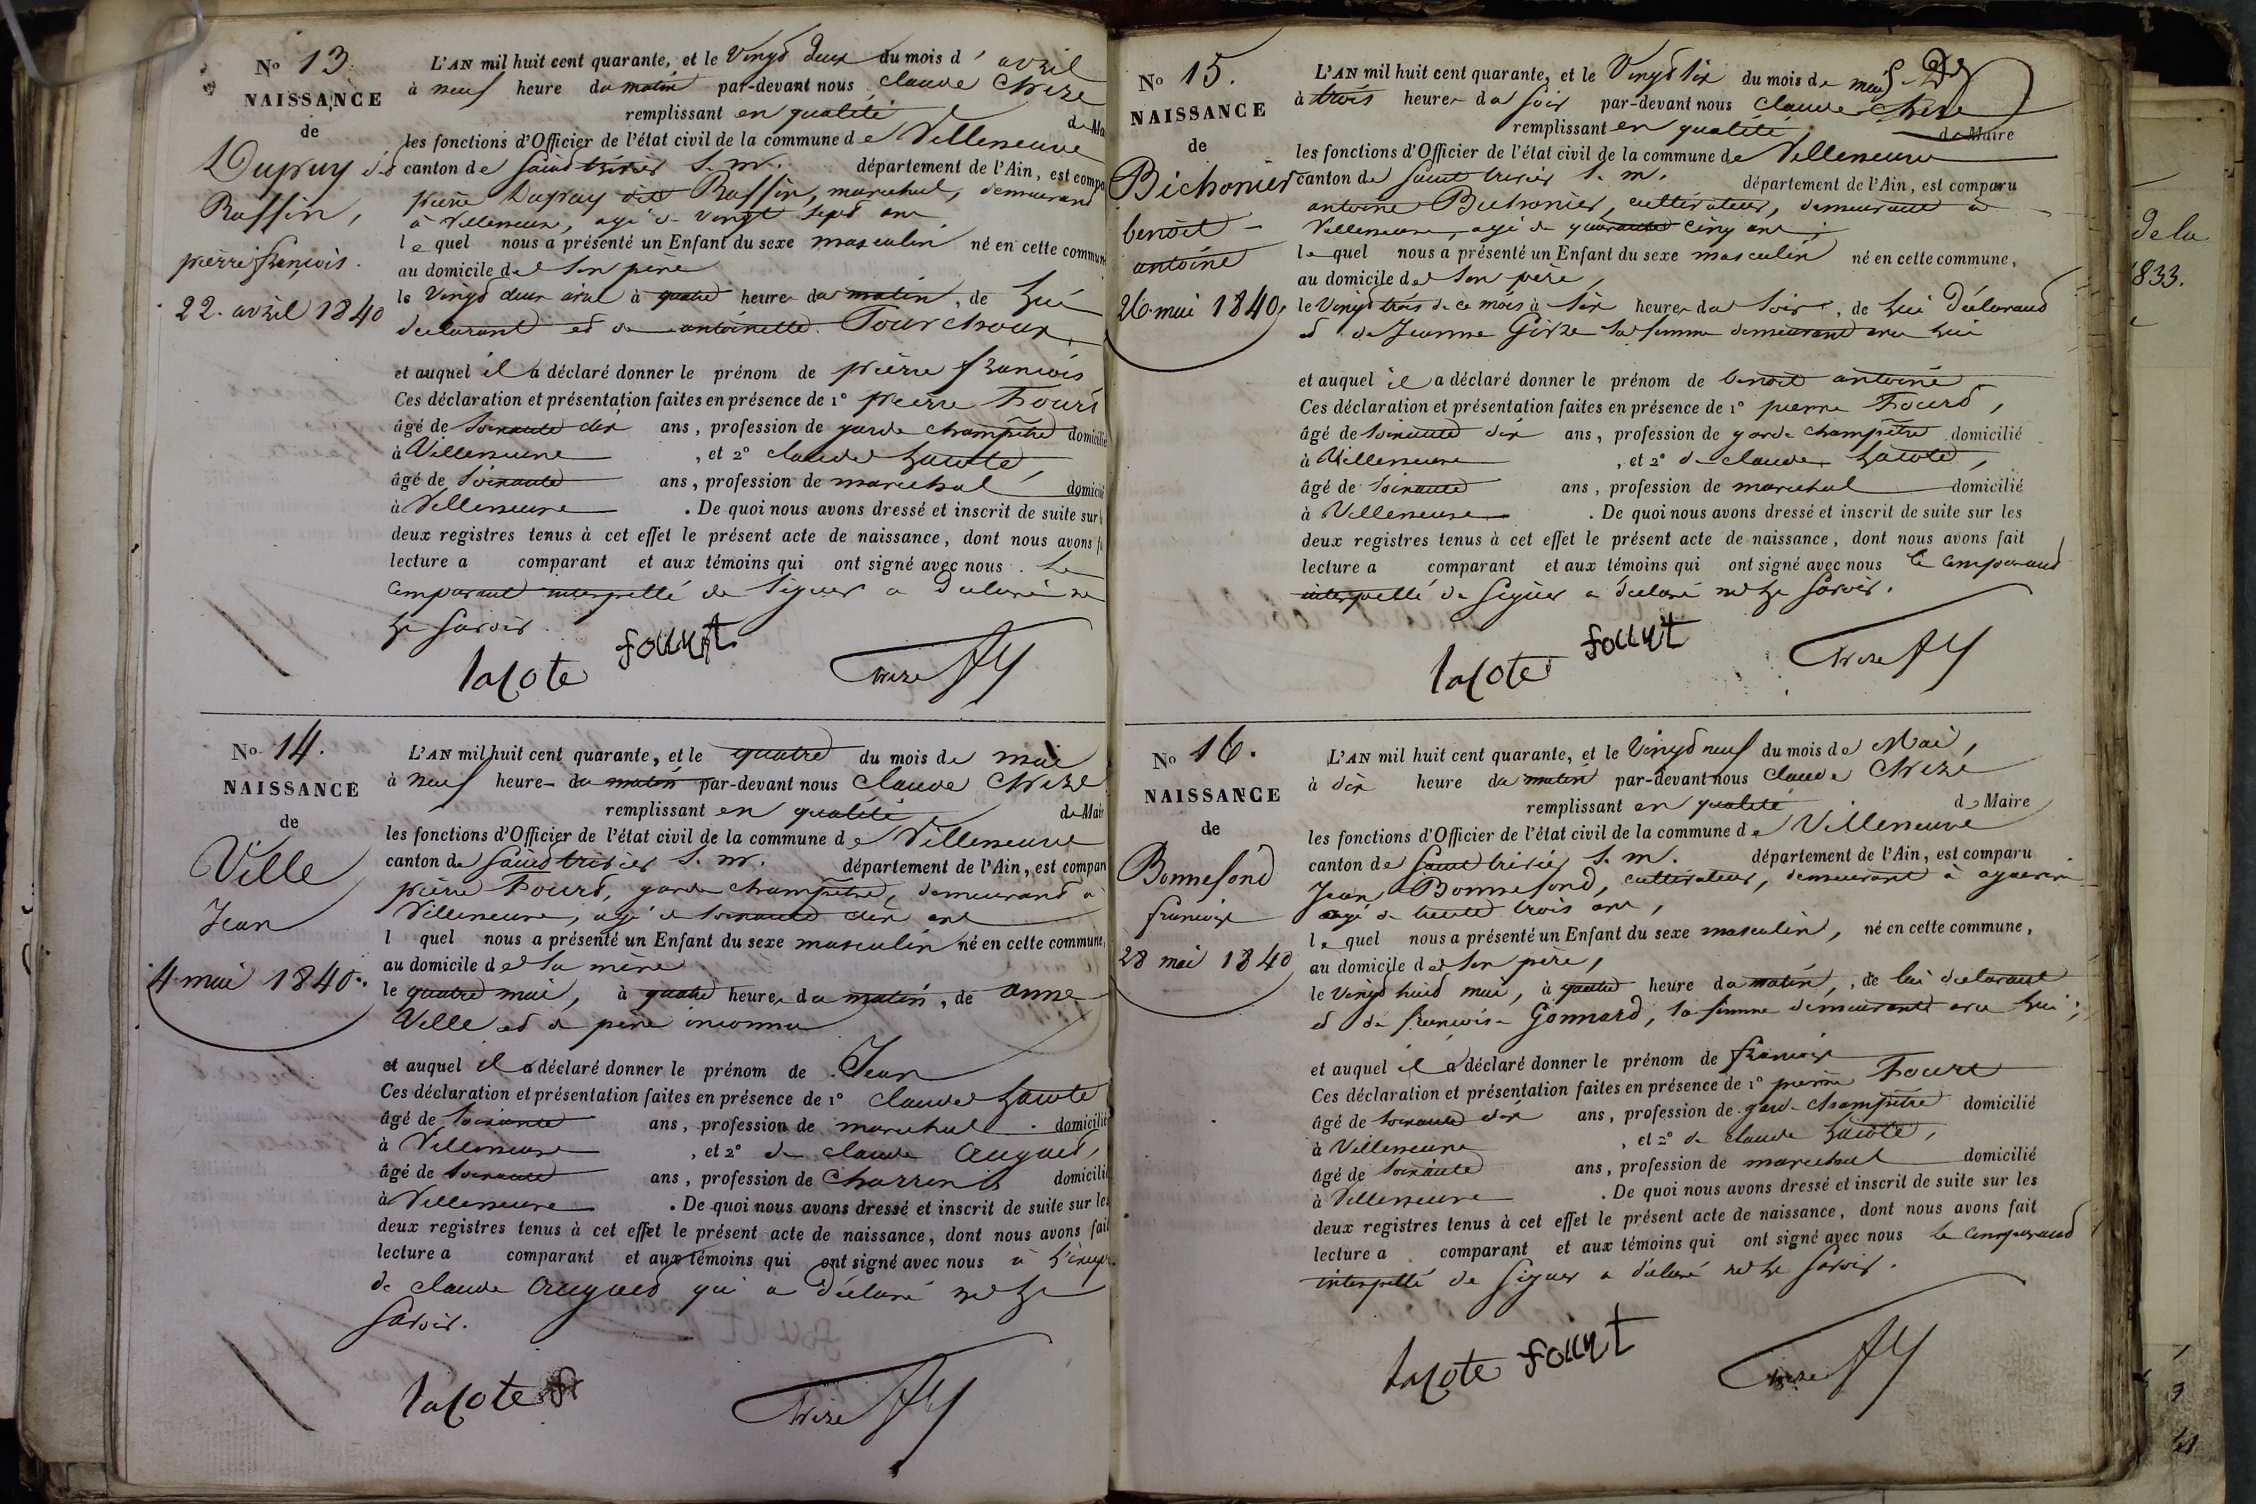 No 13.
NAISSANCE
de
Dupuy dit
Raffin,
pierre françois.
22. avril 1840
L'AN mil huit cent quarante, et le vingt deux du mois d' avril
à neuf heure du matin par-devant nous claude Chize
remplissant en qualité de Ma
les fonctions d'Officier de l'état civil de la commune de Villeneuve
canton de saint trivier s. m. département de l'Ain, est compa
pierre Dupuy dit Raffin, marechal, demeurant
à Villeneuve, agé de vingt sept ans
lequel nous a présenté un Enfant du sexe masculin né en cette commune
au domicile de son père
le vingt deux avril à quatre heures du matin, de lui
declarant et de antoinette Fourchoux
et auquel il a déclaré donner le prénom de pierre françois
Ces déclaration et présentation faites en présence de 1° pierre Fourt
âgé de soixante dix ans, profession de garde champêtre domicilié
à Villeneuve, et 2° claude Lacote,
âgé de soixante ans, profession de marechal domicilié
à Villeneuve. De quoi nous avons dressé et inscrit de suite sur l
deux registres tenus à cet effet le présent acte de naissance, dont nous avons f
lecture a comparant et aux témoins qui ont signé avec nous. Le
comparant interpellé de signer a déclaré ne
le savoir.
lacote fourt Chize
No 14.
NAISSANCE
de
Ville
Jean
4 mai 1840.
L'AN mil huit cent quarante, et le quatre du mois de mai
à neuf heure du matin par-devant nous claude Chize
remplissant en qualité de Mair
les fonctions d'Officier de l'état civil de la commune de Villeneuve
canton de saint trivier s. m. département de l'Ain, est compar
pierre Fourt, garde champêtre, demeurant à
Villeneuve, agé de soixante dix ans
l quel nous a présenté un Enfant du sexe masculin né en cette commune,
au domicile de sa mère
le quatre mai, à quatre heures du matin, de anne
Ville et de père inconnu
et auquel il a déclaré donner le prénom de Jean
Ces déclaration et présentation faites en présence de 1° claude Lacote
âgé de soixante ans, profession de marechal domicilié
à Villeneuve, et 2° de claude Augued,
âgé de soixante ans, profession de Charron domicilié
à Villeneuve. De quoi nous avons dressé et inscrit de suite sur les
deux registres tenus à cet effet le présent acte de naissance, dont nous avons fait
lecture a comparant et aux témoins qui ont signé avec nous à l'excep
de claude Augued qui a déclaré ne le
savoir.
lacote Chize
No 15.
NAISSANCE
de
Bichonier
benoit
antoine
26 mai 1840,
L'AN mil huit cent quarante, et le vingt six du mois de mai
à trois heures du soir par-devant nous claude Chize
remplissant en qualité de Maire
les fonctions d'Officier de l'état civil de la commune de Villeneuve
canton de saint trivier s. m. département de l'Ain, est comparu
antoine Bichonier, cultivateur, demeurant à
Villeneuve, agé de quarante cinq ans,
lequel nous a présenté un Enfant du sexe masculin né en cette commune,
au domicile de son père
le vingt trois de ce mois à six heures du soir, de lui déclarant
et de Jeanne Girze sa femme demeurant avec lui
et auquel il a déclaré donner le prénom de benoit antoine
Ces déclaration et présentation faites en présence de 1° pierre Fourt,
âgé de soixante dix ans, profession de garde champêtre domicilié
à Villeneuve, et 2° de claude Lacote,
âgé de soixante ans, profession de marechal domicilié
à Villeneuve. De quoi nous avons dressé et inscrit de suite sur les
deux registres tenus à cet effet le présent acte de naissance, dont nous avons fait
lecture a comparant et aux témoins qui ont signé avec nous le comparant
interpellé de signer a déclaré ne le savoir.
lacote fourt Chize
No 16.
NAISSANCE
de
Bonnefond
françoise
28 mai 1840
L'AN mil huit cent quarante, et le vingt neuf du mois de Mai,
à dix heure du matin par-devant nous claude Chize
remplissant en qualité de Maire
les fonctions d'Officier de l'état civil de la commune de Villeneuve
canton de saint trivier s. m. département de l'Ain, est comparu
Jean Bonnefond, cultivateur, demeurant à
agé de trente trois ans,
lequel nous a présenté un Enfant du sexe masculin, né en cette commune,
au domicile de son père,
le vingt huit mai, à quatre heure du matin, de lui déclarant
et de françoise Gonnard, sa femme demeurante avec lui;
et auquel il a déclaré donner le prénom de françoise
Ces déclaration et présentation faites en présence de 1° pierre Fourt
âgé de soixante dix ans, profession de garde champêtre domicilié
à Villeneuve, et 2° de claude Lacote,
âgé de soixante ans, profession de marechal domicilié
à Villeneuve. De quoi nous avons dressé et inscrit de suite sur les
deux registres tenus à cet effet le présent acte de naissance, dont nous avons fait
lecture a comparant et aux témoins qui ont signé avec nous le comparant
interpellé de signer a déclaré ne le savoir.
lacote fourt Chize
de la
1833.